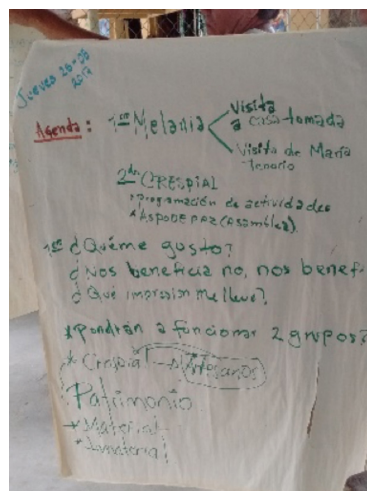 Jueves 26-05
2017
Agenda:
1ro Melania
Visita
a casa tomada
Visita de María
Tenorio
2do CRESPIAL
programación de actividades
* ASPODEPAZ (Asamblea)
1ro ¿Qué me gusto?
¿Nos beneficia no, nos benef
¿Qué impresion me lleve?
* pondrán a funcionar 2 grupos?
* Crespial → Artesanos
Patrimonio
* Material
* Inmaterial